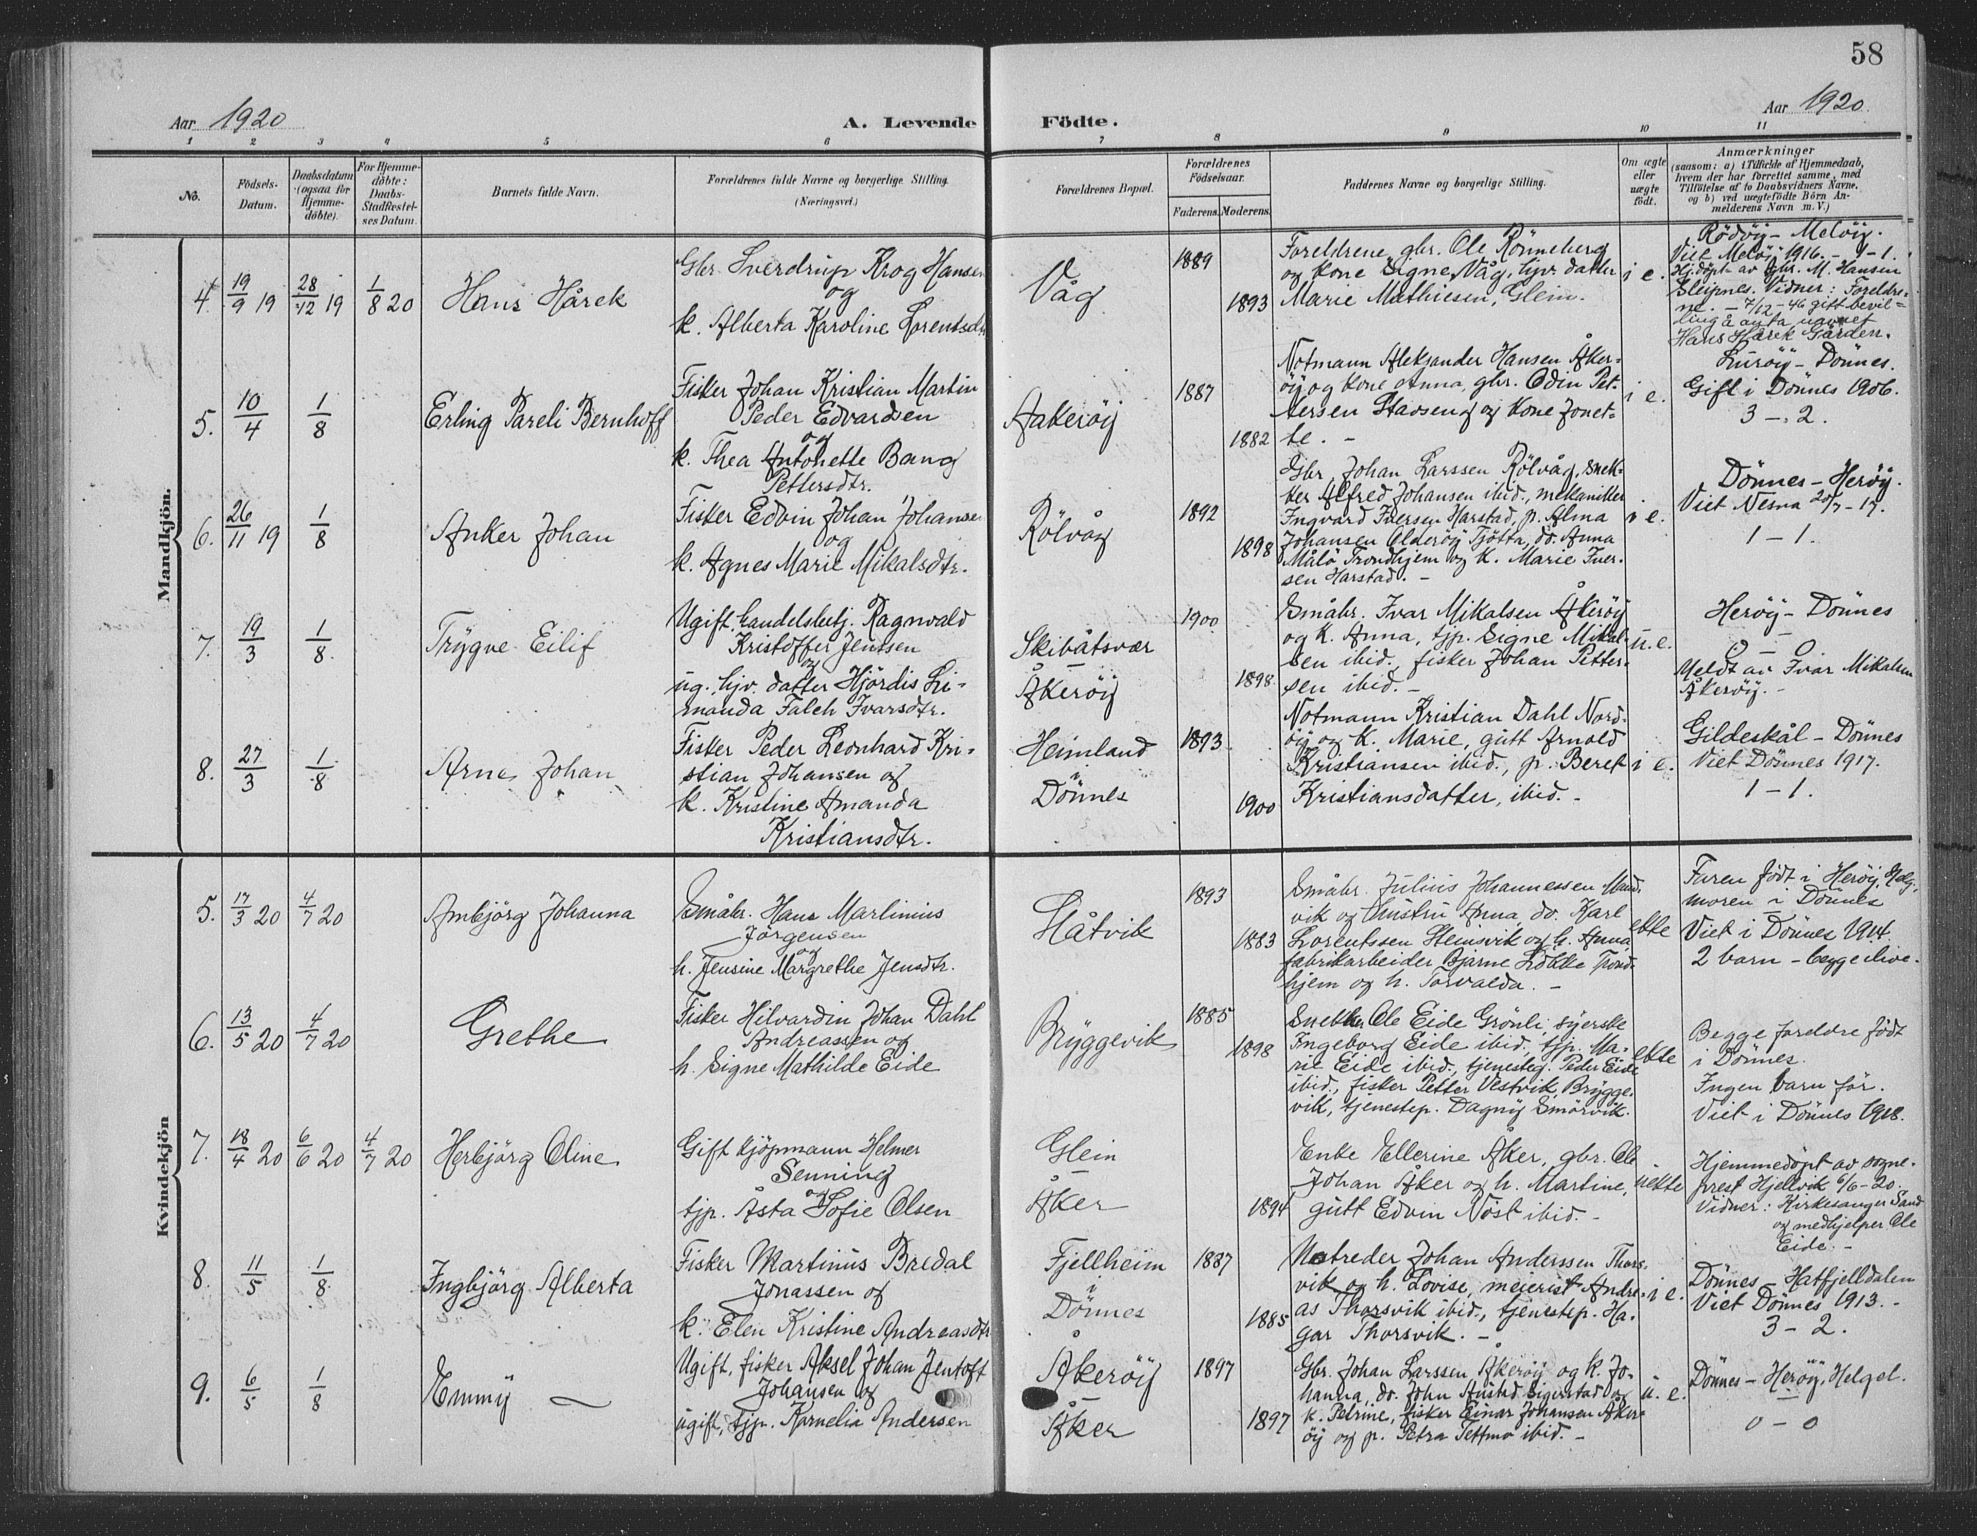 58
Aar 1920
A. Levende Födte.
Aar 1920.
1 2 3 4 5 6 7 8 9 10 11
No.
Födsels-
Datum.
Daabsdatum
(ogsaa for
Hjemme-
döbte).
For Hjemme-
döbte:
Daabs-
Stadfæstel-
ses Datum.
Barnets fulde Navn.
Forældrenes fulde Navne og borgerlige Stilling.
(Næringsvei.)
Forældrenes Bopæl.
Forældrenes
Födselsaar.
Faderens. Moderens.
Faddernes Navne og borgerlige Stilling.
Om ægte
eller
uægte
födt.
Anmærkninger
(saasom: a) i Tilfælde af Hjemmedaab,
hvem der har forrettet samme, med
Tilföielse af to Daabsvidners Navne,
og b) ved uægtefödte Börn An-
melderens Navn m. V.)
Mandkjön.
4. 19/9 19 28/12 19 1/8 20
Hans Hårek
Gbr. Sverdrup Krog Hansen
og
k. Alberta Karoline Lorentsdtr
Våg
1889
1893
Foreldrene, gbr. Ole Rönneberg
og kone Signe Våg, hjv. datter
Marie Mathiesen, Glein.
i e.
Rödöy - Melöy.
Viet Melöy 1916. - 1-1.
Hj.döpt av gbr. M. Hansen
Sleipnes. Vidner: Foreldre-
ne. - 7/12-46 gitt bevil-
ling å anta navnet
Hans Hårek Gården.
5. 10/4 1/8
Erling Pareli Bernhoff
Fisker Johan Kristian Martin
Peder Edvardsen
og
k. Thea Antonette Bang
Pettersdtr.
Aakeröy
1887
1882
Notmann Aleksander Hansen Åker-
öy og kone Anna, gbr. Odin Pet-
tersen Stavseng og kone Jonet-
te. -
i e.
Luröy - Dönnes.
Gift i Dönnes 1906.
3 - 2.
6. 26/11 19 1/8
Anker Johan
Fisker Edvin Johan Johansen
og
k. Agnes Marie Mikalsdtr.
Rölvåg
1892
1898
Gbr. Johan Larssen Rölvåg, snek-
ker Alfred Johansen ibid., mekaniker
Ingvard Iversen Harstad, p. Alma
Johansen Olderöy Tjötta, do. Anna
Målö Trondhjem og k. Marie Iver-
sen Harstad. -
i e.
Dönnes - Heröy.
Viet Nesna 20/7 - 17.
1 - 1.
7. 19/3 1/8
Trygve Eilif
Ugift, handelsbetj. Ragnvald
Kristoffer Jentsen
og
ug. hjv. datter Hjördis Li-
manda Falch Ivarsdtr.
Skibåtsvær
-
Åkeröy
1900
1898
Småbr. Ivar Mikalsen Åkeröy
og k. Anna, tjp. Signe Mikal-
sen ibid., fisker Johan Petter-
sen ibid. -
u. e.
Heröy - Dönnes
0 - 0
Meldt av Ivar Mikalsen
Åkeröy. -
8. 27/3 1/8
Arne Johan
Fisker Peder Leonhard Kri-
stian Johansen og
k. Kristine Amanda
Kristiansdtr.
Heimland
i
Dönnes
1893
1900
Notmann Kristian Dahl Nord-
öy og k. Marie, gutt Arnold
Kristiansen ibid., p. Beret
Kristiansdatter, ibid. -
i e.
Gildeskål - Dönnes
Viet Dönnes 1917.
1 - 1.
Kvindekjön
5. 17/3 20 4/7 20
Ambjörg Johanna
Småbr. Hans Martinius
Jörgensen
og
h. Jensine Margrethe Jensdtr.
Håtvik
1893
1883
Småbr. Julius Johannessen Mand-
vik og hustru Anna, do. Karl
Lorentssen Steinsvik og h. Anna,
fabrikarbeider Bjarne Trond-
hjem og h. Torvalda. -
ekte
Faren födt i Heröy, Helg.
moren i Dönnes
Viet i Dönnes 1914.
2 barn - begge ilive.
6. 13/5 20 4/7 20
Grethe
Fisker Hilvardin Johan Dahl
Andreassen og
h. Signe Mathilde Eide
Bryggevik
1885
1898
Snekker Ole Eide Grönli, syerske
Ingeborg Eide ibid., tjp. Ma-
rie Eide ibid., tjenesteg. Peder Eide
ibid., fisker Petter Vestvik, Brygge-
vik, tjenestep. Dagny Smörvik.
ekte
Begge foreldre födt
i Dönnes.
Ingen barn för.
Viet i Dönnes 1918.
7. 18/4 20 6/6 20 4/7 20
Herbjörg Oline
Gift kjöpmann Helmer
Senning
og
tjp. Åsta Sofie Olsen
Glein
-
Åker
1894
Enke Ellerine Åker, gbr. Ole
Johan Åker og h. Martine,
gutt Edvin Nöst ibid. -
uekte
Hjemmedöpt av sogne-
prest Hjellvik 6/6-20.
Vidner: Kirkesanger Sand
og medhjelper Ole
Eide. -
8. 11/5 1/8
Ingbjörg Alberta
Fisker Martinus Bredal
Jonassen og
k. Elen Kristine Andreasdtr
Fjellheim
i
Dönnes
1887
1885
Notreder Johan Anderssen Thors-
vik og h. Lovise, meierist Andre-
as Thorsvik ibid., tjenestep. Ha-
gar Thorsvik. -
i e.
Dönnes - Hatfjelldalen
Viet Dönnes 1913. -
3 - 2.
9. 6/5 1/8
Emmy -
Ugift, fisker Aksel Johan Jentoft
Johansen og
ugift, tjp. Kornelia Andersen
Åkeröy
-
Åker
1897
1897
Gbr. Johan Larssen Åkeröy og k. Jo-
hanna, do. John Sigerstad og
k. Petrine, fisker Einar Johansen Åker-
öy og p. Petra Tettmo ibid. -
u. e.
Dönnes - Heröy, Helgel.
0 - 0